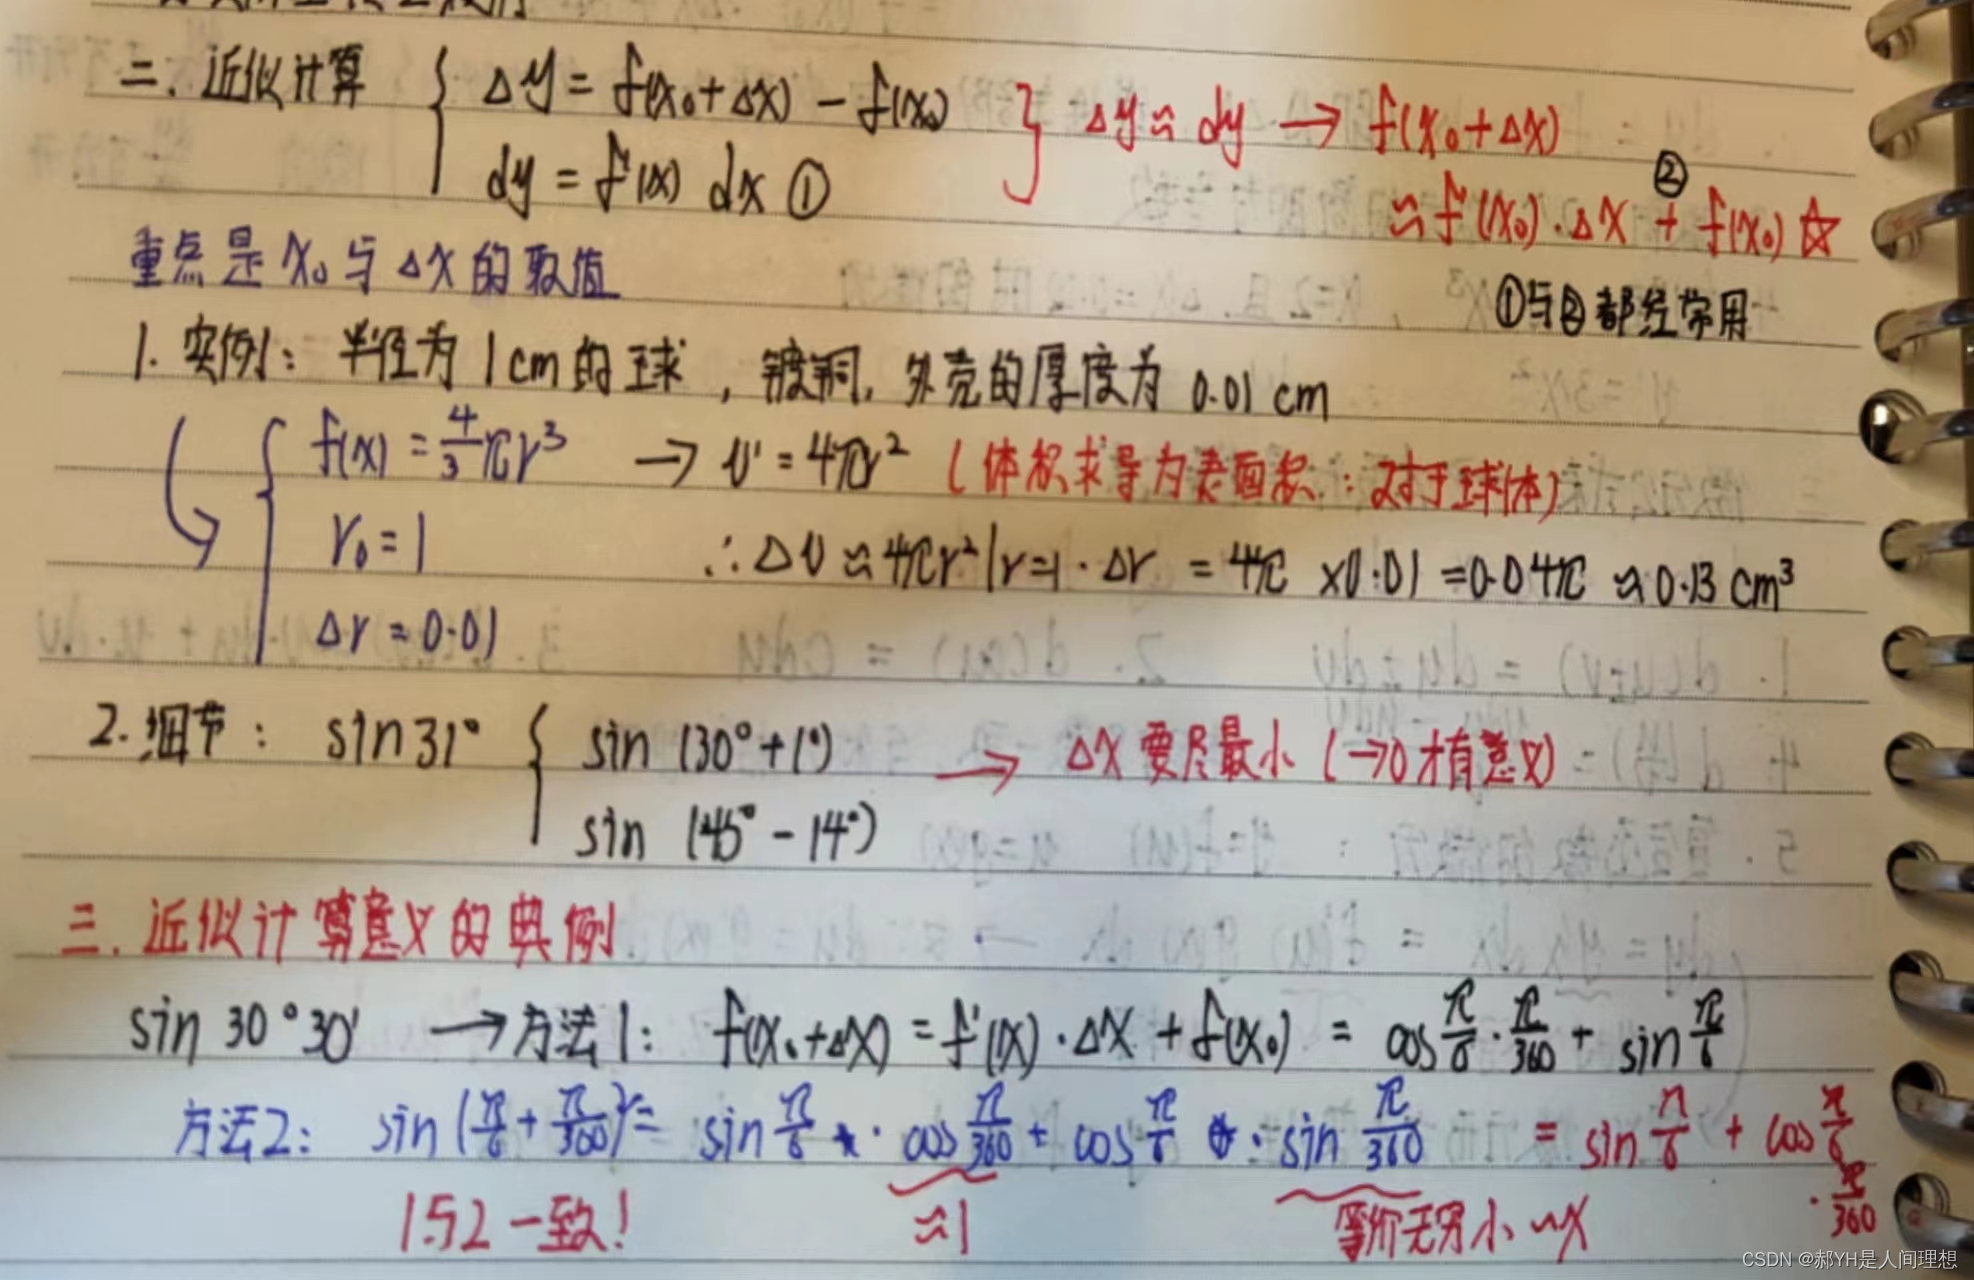 二. 近似计算 { Δy = f(x₀+Δx) − f(x₀) } Δy ≈ dy → f(x₀+Δx)
dy = f'(x) dx ① ≈ f'(x₀)·Δx + f(x₀) ☆ ②
重点是 x₀ 与 Δx 的取值
①与②都经常用
1. 实例: 半径为 1cm 的球, 镀铜, 外壳的厚度为 0.01 cm
f(x) = 4/3 πr³ → v' = 4πr² (体积求导为表面积: 对于球体)
r₀ = 1 ∴ Δv ≈ 4πr²|r=1 · Δr = 4π ×0.01 = 0.04π ≈ 0.13 cm³
Δr = 0.01
2. 细节: sin31° { sin (30°+1°) → Δx 要尽最小 (→0才有意义)
sin (45° − 14°)
三. 近似计算意义的典例
sin 30°30' → 方法1: f(x₀+Δx) = f'(x)·Δx + f(x₀) = cos π/6 · π/360 + sin π/6
方法2: sin(π/6 + π/360) = sin π/6 · cos π/360 + cos π/6 · sin π/360 = sin π/6 + cos π/6
· π/360
1与2一致! ≈1 等价无穷小 ~x
CSDN @郝YH是人间理想